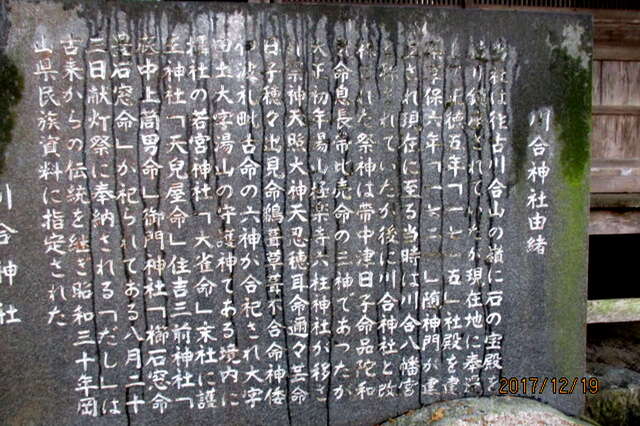 川合神社由緒
当社は往古川合山の嶺に石の宝殿を
り鎮座されていたが現在地に奉遷
徳五年「一七一五」社殿を建
享保六年「一七二一」随神門が建
され現在に至る当時は川合八幡宮
されていたが後に川合神社と改
れた祭神は帯中津日子命品陀和
命息長帯比売命の三神であったが
大正初年湯山極楽寺六柱神社が移さ
れ祭神天照大神天忍穂耳命邇々芸命
日子穂々出見命鵜葺草葺不合命神倭
伊波礼毗古命の六神が合祀され大字
大字湯山の守護神である境内に
摂社の若宮神社「大雀命」末社に護
王神社「天兒屋命」住吉三前神社「
底中上筒男命」御門神社「櫛石窓命
豊石窓命」が祀られてある八月二十
三日献灯祭に奉納される「だし」は
古来からの伝統を継ぎ昭和三十年岡
山県民族資料に指定された
川合神社
2017/12/19